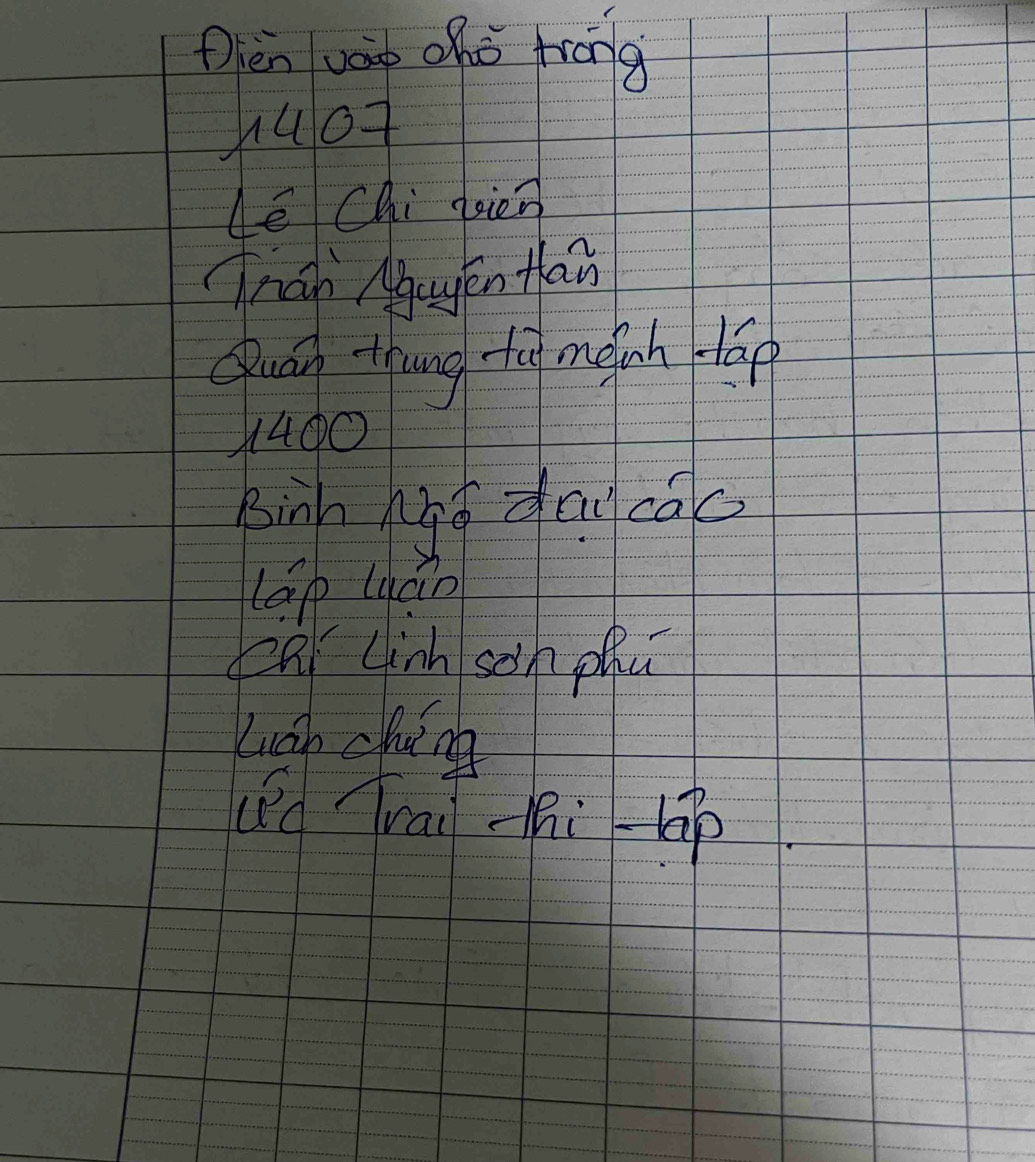 Điền vào chỗ trống
1407
Lê Chi viên
Trần Nguyên Hãn
Quân trung từ mệnh tập
1400
Bình Ngô đại cáo
Lập luận
Chí Linh sơn phú
Luận chứng
Ức Trai thi tập.